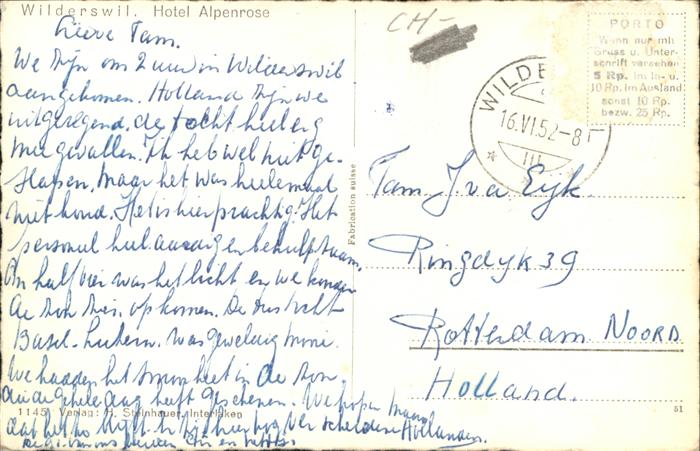 Wilderswil. Hotel Alpenrose
CH-
Lieve Tam.
We zijn om 2 uur in Wilderswil
aangekomen. Holland zijn we
uitgeregend. de tocht heel erg
meegevallen. Ik heb wel niet ge-
slapen, maar het was heelemaal
niet koud. Het is hier prachtig. Het
personeel heel aardig en behulpzaam.
Om half vier was het licht en we konden
de zon zien opkomen. De tocht
Basel - Luzern was geweldig mooi.
We hadden het smoorheet in de zon
die de geheele dag heeft geschenen. We hopen maar
dat het zo blijft. Er zijn hier nog verscheidene Hollanders.
en
1145 Verlag: H. Steinhauer, Interlaken
Fabrication suisse
PORTO
Wenn nur mit
Gruss u. Unter-
schrift versehen
5 Rp. im In- u.
10 Rp. im Ausland
sonst 10 Rp.
bezw. 25 Rp.
WILDE
16.VI.52-8
III
Tam J. v.a. Eyk
Ringdyk 39
Rotterdam Noord
Holland.
51